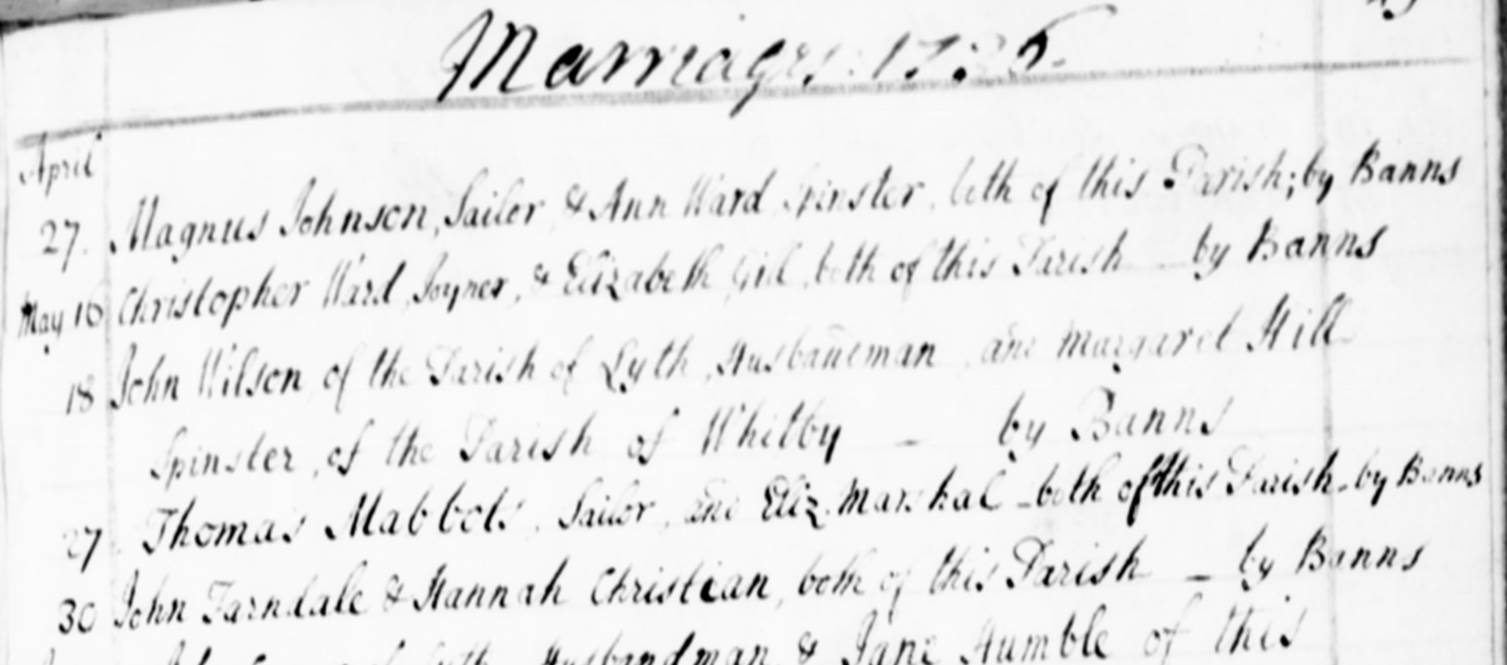 Marriages. 1736.
April
27. Magnus Johnson, Sailer, & Ann Ward Spinster, both of this Parish; by Banns
May 16 Christopher Ward, Joyner, & Elizabeth Gill, both of this Parish by Banns
18 John Wilson, of the Parish of Lyth, Husbandman, and Margaret Hill
Spinster, of the Parish of Whitby - by Banns
27. Thomas Mabbots, Sailor, and Eliz. Marshal - both of this Parish - by Banns
30 John Farndale & Hannah Christian, both of this Parish - by Banns
Husbandman, & Jane Humble of this